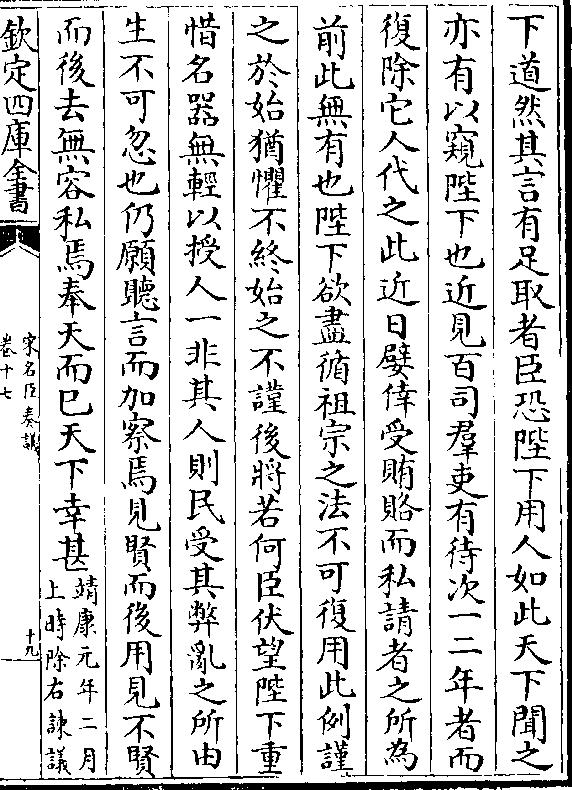 下道然其言有足取者臣恐陛下用人如此天下聞之
亦有以窺陛下也近見百司羣吏有待次一二年者而
復除它人代之此近日嬖倖受賄賂而私請者之所為
前此無有也陛下欲盡循祖宗之法不可復用此例謹
之於始猶懼不終始之不謹後將若何臣伏望陛下重
惜名器無輕以授人一非其人則民受其弊亂之所由
生不可忽也仍願聽言而加察焉見賢而後用見不賢
而後去無容私焉奉天而已天下幸甚靖康元年二月
上時除右諫議
欽定四庫全書
宋名臣奏議
卷十七
十九